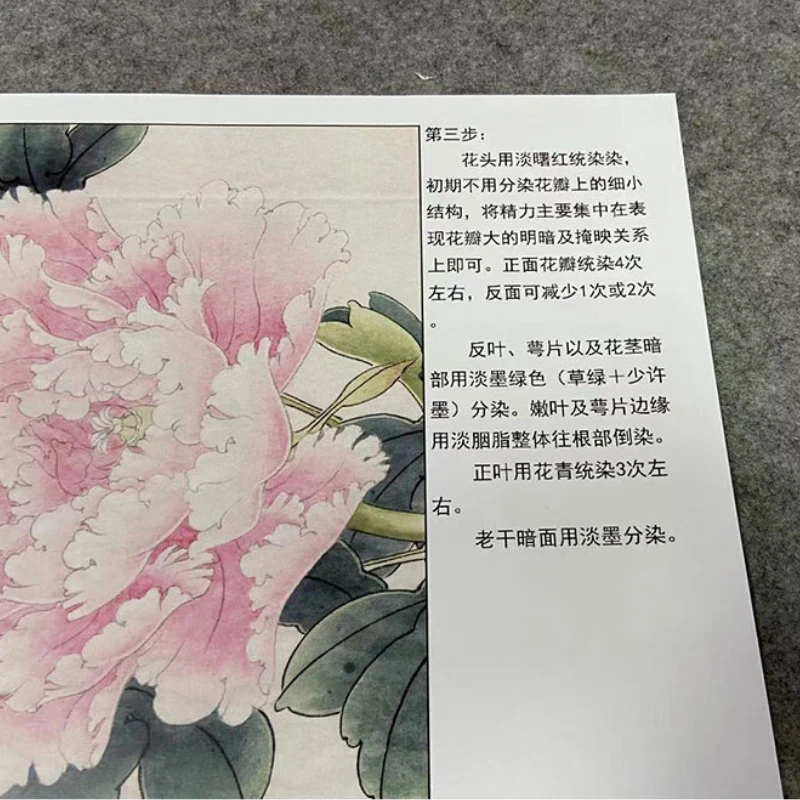 第三步：
花头用淡曙红统染染，
初期不用分染花瓣上的细小
结构，将精力主要集中在表
现花瓣大的明暗及掩映关系
上即可。正面花瓣统染4次
左右，反面可减少1次或2次
。
反叶、萼片以及花茎暗
部用淡墨绿色（草绿＋少许
墨）分染。嫩叶及萼片边缘
用淡胭脂整体往根部倒染。
正叶用花青统染3次左
右。
老干暗面用淡墨分染。